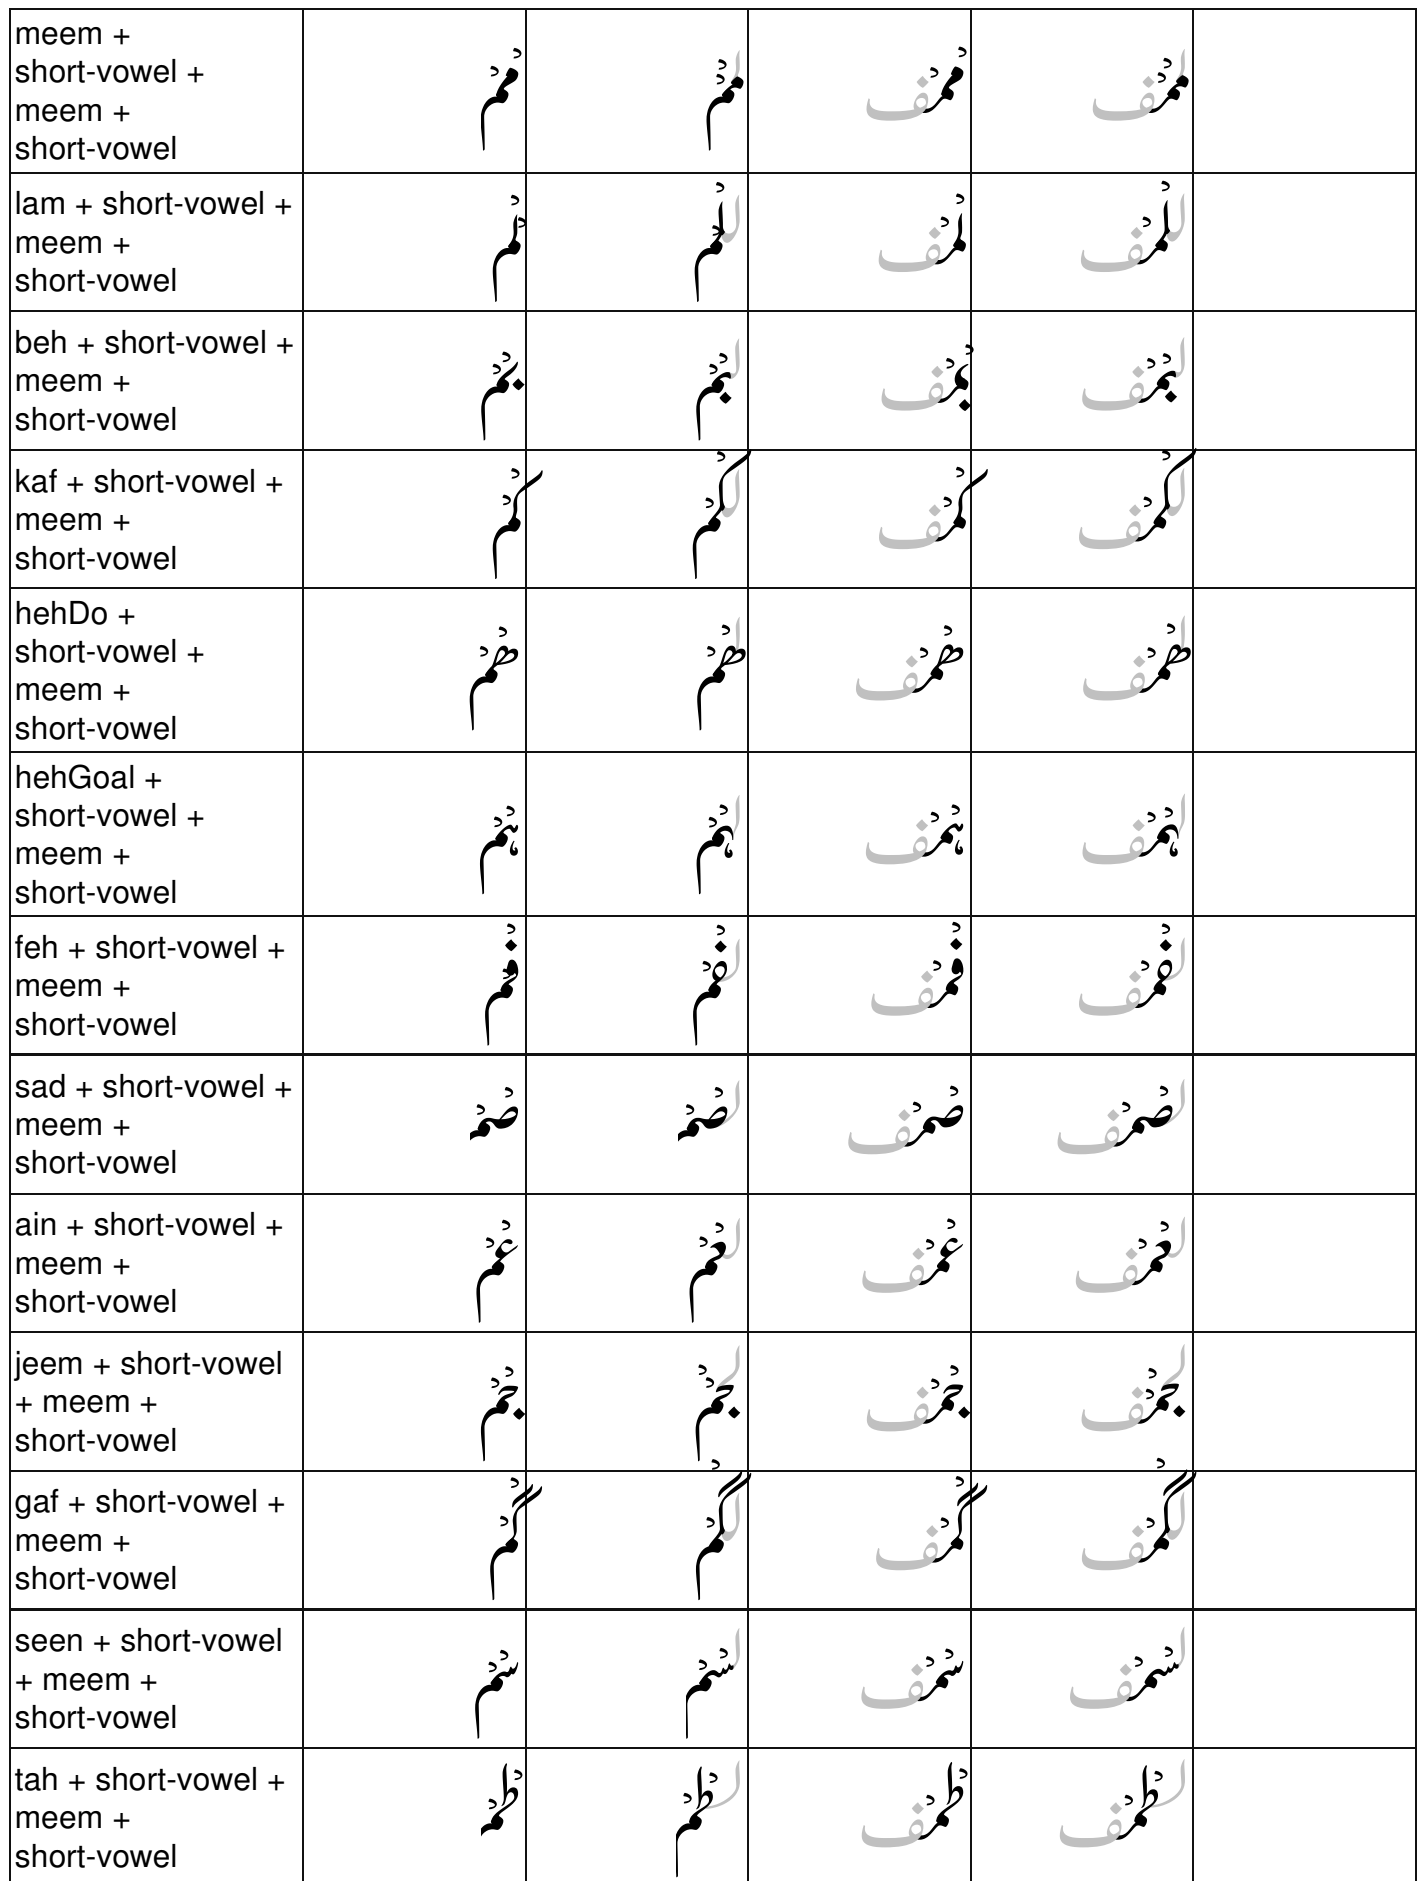 meem +
short-vowel +
meem +
short-vowel
مْمْ لمْمْ مْمْف لمْمْف
lam + short-vowel +
meem +
short-vowel
لْمْ للْمْ لْمْف للْمْف
beh + short-vowel +
meem +
short-vowel
بْمْ لبْمْ بْمْف لبْمْف
kaf + short-vowel +
meem +
short-vowel
کْمْ لکْمْ کْمْف لکْمْف
hehDo +
short-vowel +
meem +
short-vowel
ھْمْ لھْمْ ھْمْف لھْمْف
hehGoal +
short-vowel +
meem +
short-vowel
ہْمْ لہْمْ ہْمْف لہْمْف
feh + short-vowel +
meem +
short-vowel
فْمْ لفْمْ فْمْف لفْمْف
sad + short-vowel +
meem +
short-vowel
صْمْ لصْمْ صْمْف لصْمْف
ain + short-vowel +
meem +
short-vowel
عْمْ لعْمْ عْمْف لعْمْف
jeem + short-vowel
+ meem +
short-vowel
جْمْ لجْمْ جْمْف لجْمْف
gaf + short-vowel +
meem +
short-vowel
گْمْ لگْمْ گْمْف لگْمْف
seen + short-vowel
+ meem +
short-vowel
سْمْ لسْمْ سْمْف لسْمْف
tah + short-vowel +
meem +
short-vowel
طْمْ لطْمْ طْمْف لطْمْف